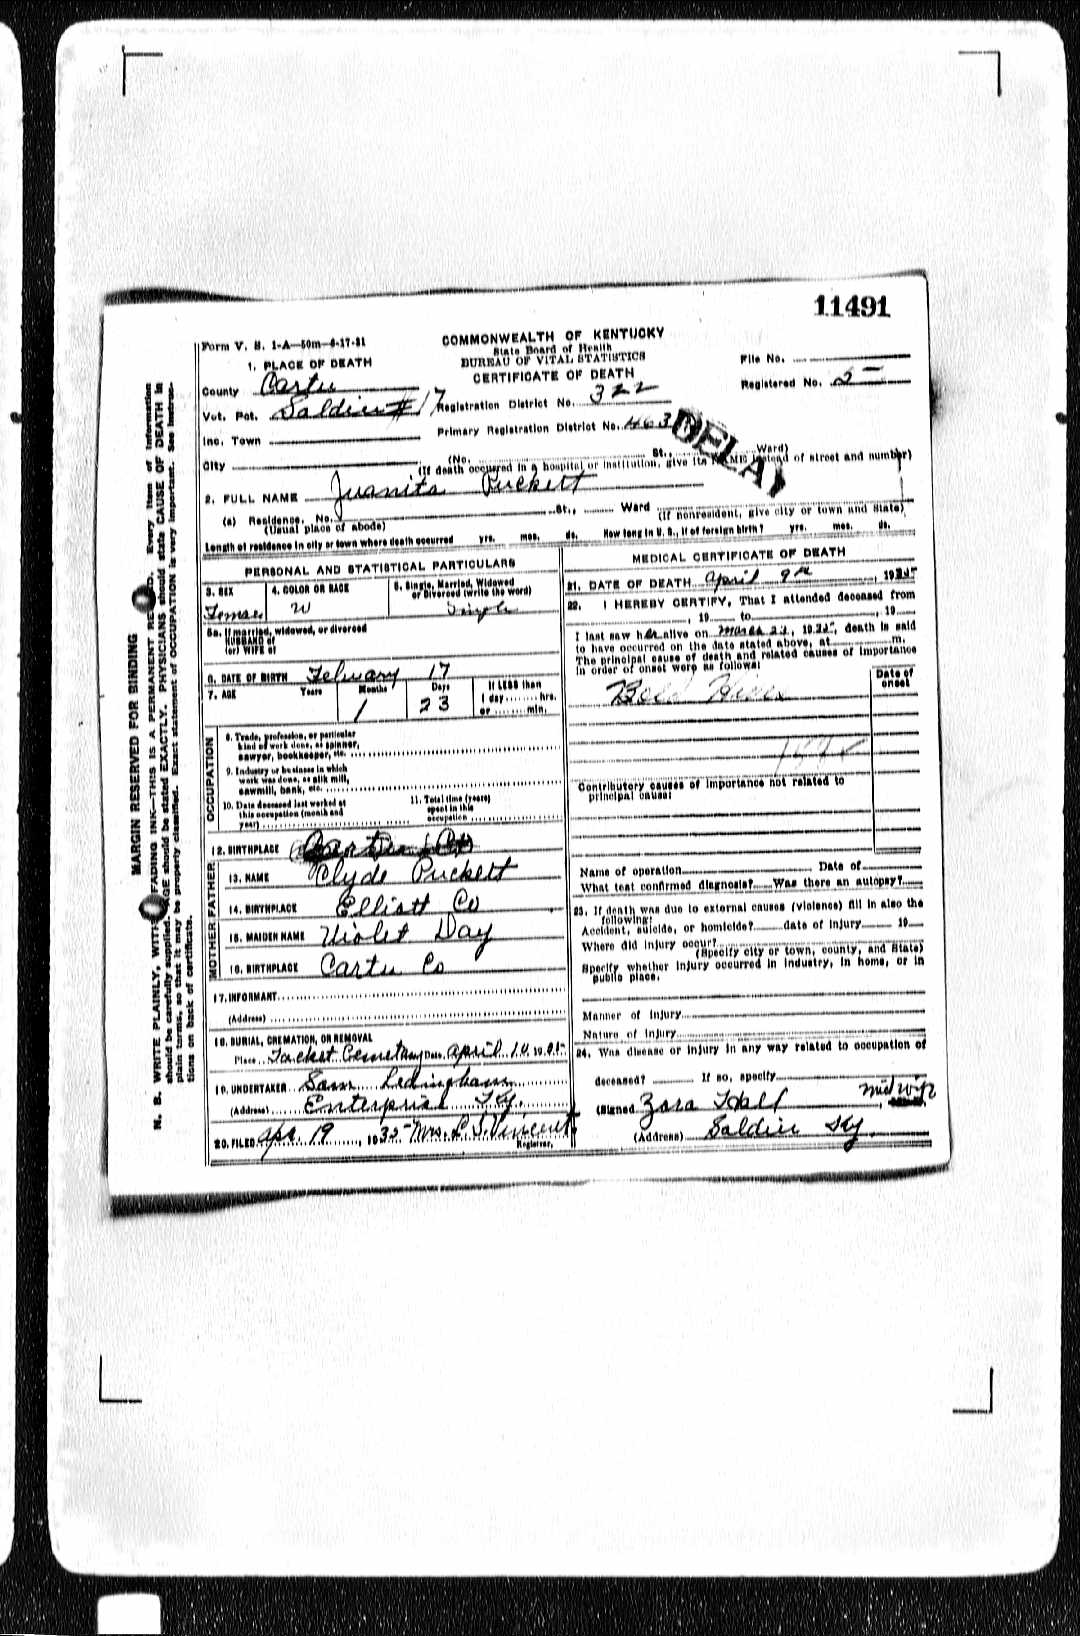 11491
Form V. S. 1-A—50m—8-17-31
COMMONWEALTH OF KENTUCKY
State Board of Health
BUREAU OF VITAL STATISTICS
CERTIFICATE OF DEATH
File No.
Registered No. 25
1. PLACE OF DEATH
County Carter
Vot. Pct. Soldier # 17
Registration District No. 322
Inc. Town
Primary Registration District No. 463
DELAY
City
(No. St., Ward)
(If death occurred in a hospital or institution, give its NAME instead of street and number)
2. FULL NAME Juanita Puckett
(a) Residence. No. St., Ward
(Usual place of abode)
(If nonresident, give city or town and State)
Length of residence in city or town where death occurred yrs. mos. ds. How long in U. S., if of foreign birth? yrs. mos. ds.
PERSONAL AND STATISTICAL PARTICULARS
3. SEX
Female
4. COLOR OR RACE
W
5. Single, Married, Widowed
or Divorced (write the word)
Single
5a. If married, widowed, or divorced
HUSBAND of
(or) WIFE of
6. DATE OF BIRTH February 17
7. AGE Years Months Days If LESS than
1 day hrs.
or min.
1 23
OCCUPATION
8. Trade, profession, or particular
kind of work done, as spinner,
sawyer, bookkeeper, etc.
9. Industry or business in which
work was done, as silk mill,
sawmill, bank, etc.
10. Date deceased last worked at
this occupation (month and
year)
11. Total time (years)
spent in this
occupation
12. BIRTHPLACE Carter Co
FATHER
13. NAME Clyde Puckett
14. BIRTHPLACE Elliott Co
MOTHER
15. MAIDEN NAME Violet Day
16. BIRTHPLACE Carter Co
17. INFORMANT
(Address)
18. BURIAL, CREMATION, OR REMOVAL
Place Tacket Cemetary Date April 10, 1935
19. UNDERTAKER Sam Ledingham
(Address) Enterprise Ky.
20. FILED Apr 19, 1935 Mrs. L. T. Vincent
Registrar.
MEDICAL CERTIFICATE OF DEATH
21. DATE OF DEATH April 9th, 1935
22. I HEREBY CERTIFY, That I attended deceased from
, 19 to , 19
I last saw her alive on March 23, 1935, death is said
to have occurred on the date stated above, at m.
The principal cause of death and related causes of importance
in order of onset were as follows:
Date of
onset
Bold Hives
Contributory causes of importance not related to
principal cause:
Name of operation Date of
What test confirmed diagnosis? Was there an autopsy?
23. If death was due to external causes (violence) fill in also the
following:
Accident, suicide, or homicide? date of injury 19
Where did injury occur?
(Specify city or town, county, and State)
Specify whether injury occurred in industry, in home, or in
public place.
Manner of injury
Nature of injury
24. Was disease or injury in any way related to occupation of
deceased? If so, specify
(Signed Zora Hall, midwife
(Address) Soldier Ky
MARGIN RESERVED FOR BINDING
N. B. WRITE PLAINLY, WITH FADING INK—THIS IS A PERMANENT RECORD. Every item of information
should be carefully supplied. AGE should be stated EXACTLY. PHYSICIANS should state CAUSE OF DEATH in
plain terms, so that it may be properly classified. Exact statement of OCCUPATION is very important. See instruc-
tions on back of certificate.